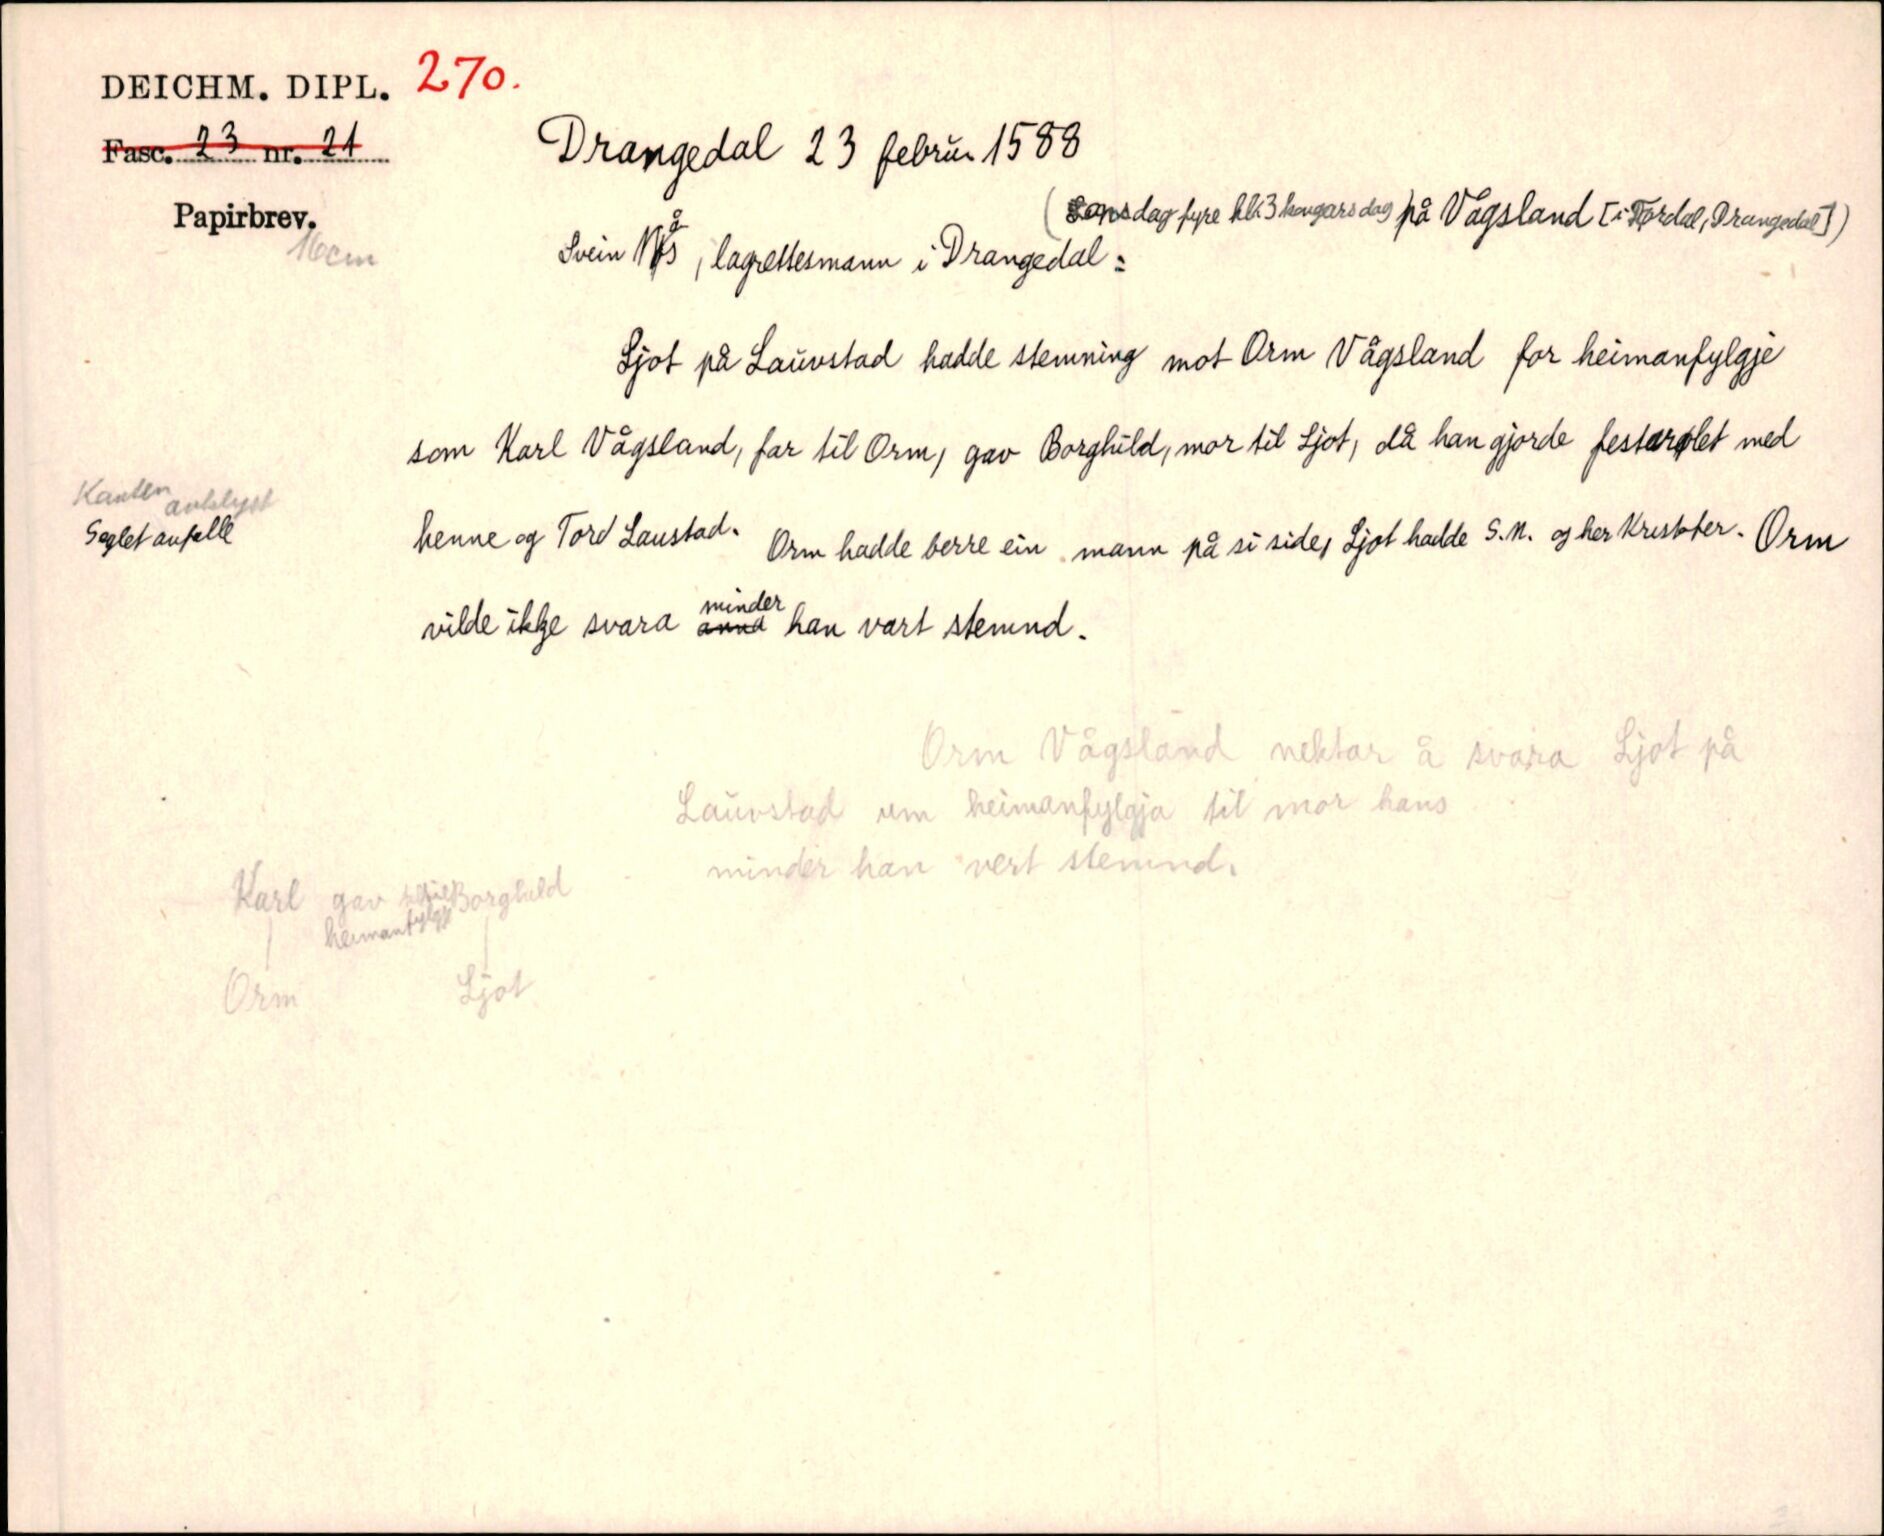 DEICHM. DIPL. 270.
Fasc. 23 nr. 21
Papirbrev.
16cm
Drangedal 23 februar 1588
(dag fyre hl. 3 kongars dag) på Vågsland [i Tørdal, Drangedal])
Svein Nås, lagrettesmann i Drangedal:
Ljot på Lauvstad hadde stemning mot Orm Vågsland for heimanfylgje
som Karl Vågsland, far til Orm, gav Borghild, mor til Ljot, då han gjorde festarølet med
henne og Tord Laustad. Orm hadde berre ein mann på si side, Ljot hadde S.N. og her Kristofer. Orm
vilde ikkje svara anna minder han vart stemnd.
Kanten avklypt
Seglet avfalle
Orm Vågsland nektar å svara Ljot på
Lauvstad um heimanfylgja til mor hans
minder han vert stemnd.
Karl gav Borghild
heimanfylgje
Orm Ljot